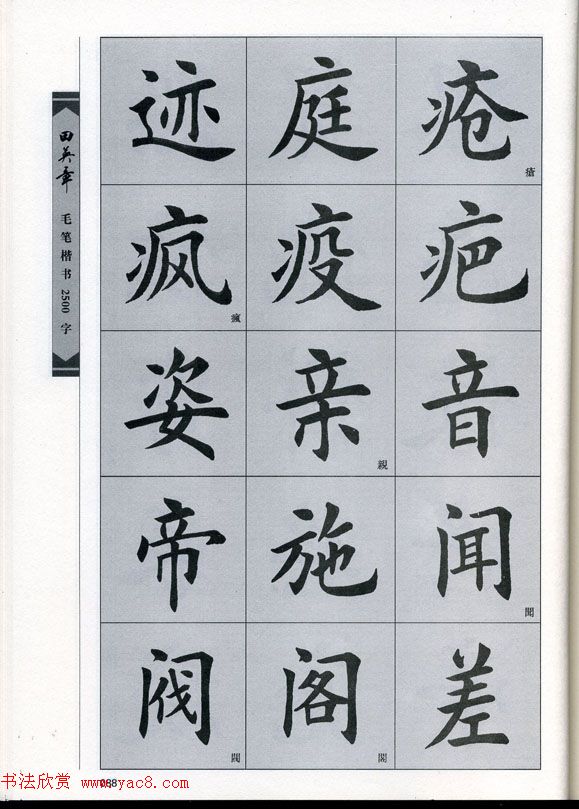 田英章
毛笔楷书 2500 字
迹 庭 疮
瘡
疯 疫 疤
瘋
姿 亲 音
親
帝 施 闻
聞
阀 阁 差
閥 閣
088
书法欣赏 www.yac8.com